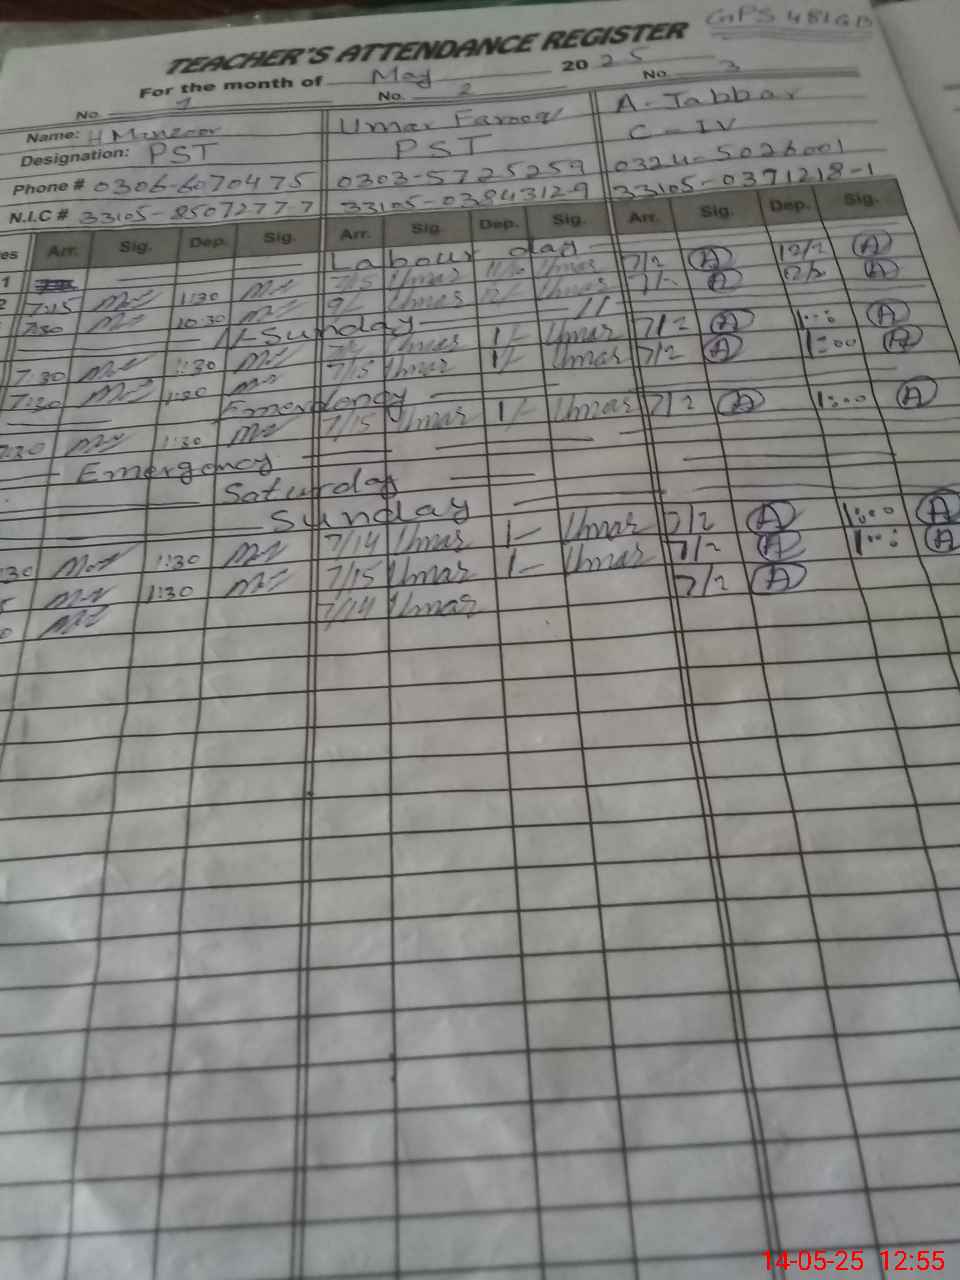 GPS 481GB
TEACHER'S ATTENDANCE REGISTER
For the month of May 2025
No. 1 No. 2 No. 3
Name: H Manzoor Umar Farooq A. Jabbar
Designation: PST PST C-IV
Phone # 0306-6070475 0303-5725259 0324-5026001
N.I.C # 33105-8507277-7 33105-0384312-9 33105-0391218-1
es Arr. Sig. Dep. Sig. Arr. Sig. Dep. Sig. Arr. Sig. Dep. Sig.
1 Labour day
2 7:15 1:30 7/5 Umar Umar 7/2 A 12/2 A
7:30 10:30 9/ Umar Umar A A
Sunday
7:30 1:30 Umar 1/- Umar 7/2 A A
7:30 1:30 7/15 Umar 1/- Umar 7/2 A 1:00 A
Emergency
7:30 1:30 7/15 Umar 1/- Umar 7/2 A 1:00 A
Emergency
Saturday
Sunday
:30 1:30 7/14 Umar 1- Umar 7/2 A 1:00 A
1:30 7/15 Umar 1- Umar 7/2 A A
7/14 Umar 7/2 A
14-05-25 12:55